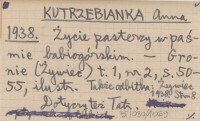 KUTRZEBIANKA Anna
1938. Życie pasterzy w paś-
mie babiogórskim. — Gro-
nie (Żywiec) t. 1, nr 2, s. 50-
55, ilustr. Także odbitka: Żywiec
1938, Stron 8
Dotyczy też Tatr.